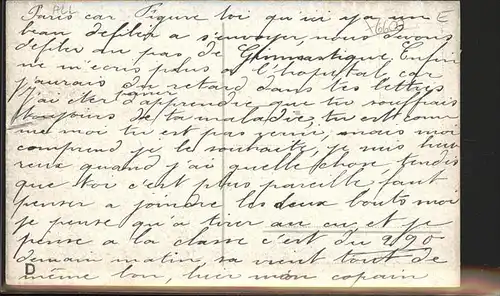 ALL
E
16607
Paris car Figure toi qu'il y a un
beau defiler a s'envoyer, nous devons
defiler au pas de Gimnastique. Enfin
ne m'ecris plus a l'hopital car
j'aurais du retard dans tes lettres
j'ai eter peiner d'apprendre que tu souffrais
toujours de ta maladie, tu est com
me moi tu est pas verni, mais moi
comprend je le souhaite, je suis heu
reux quand j'ai quelle chose, tendis
que toi c'est plus pareille, faut
penser a joindre les deux bouts moi
je pense qu'a tirer au cu, et je
pense a la classe c'est du 290
demain matin, sa vient tout de
même bon, hier mon copain
D